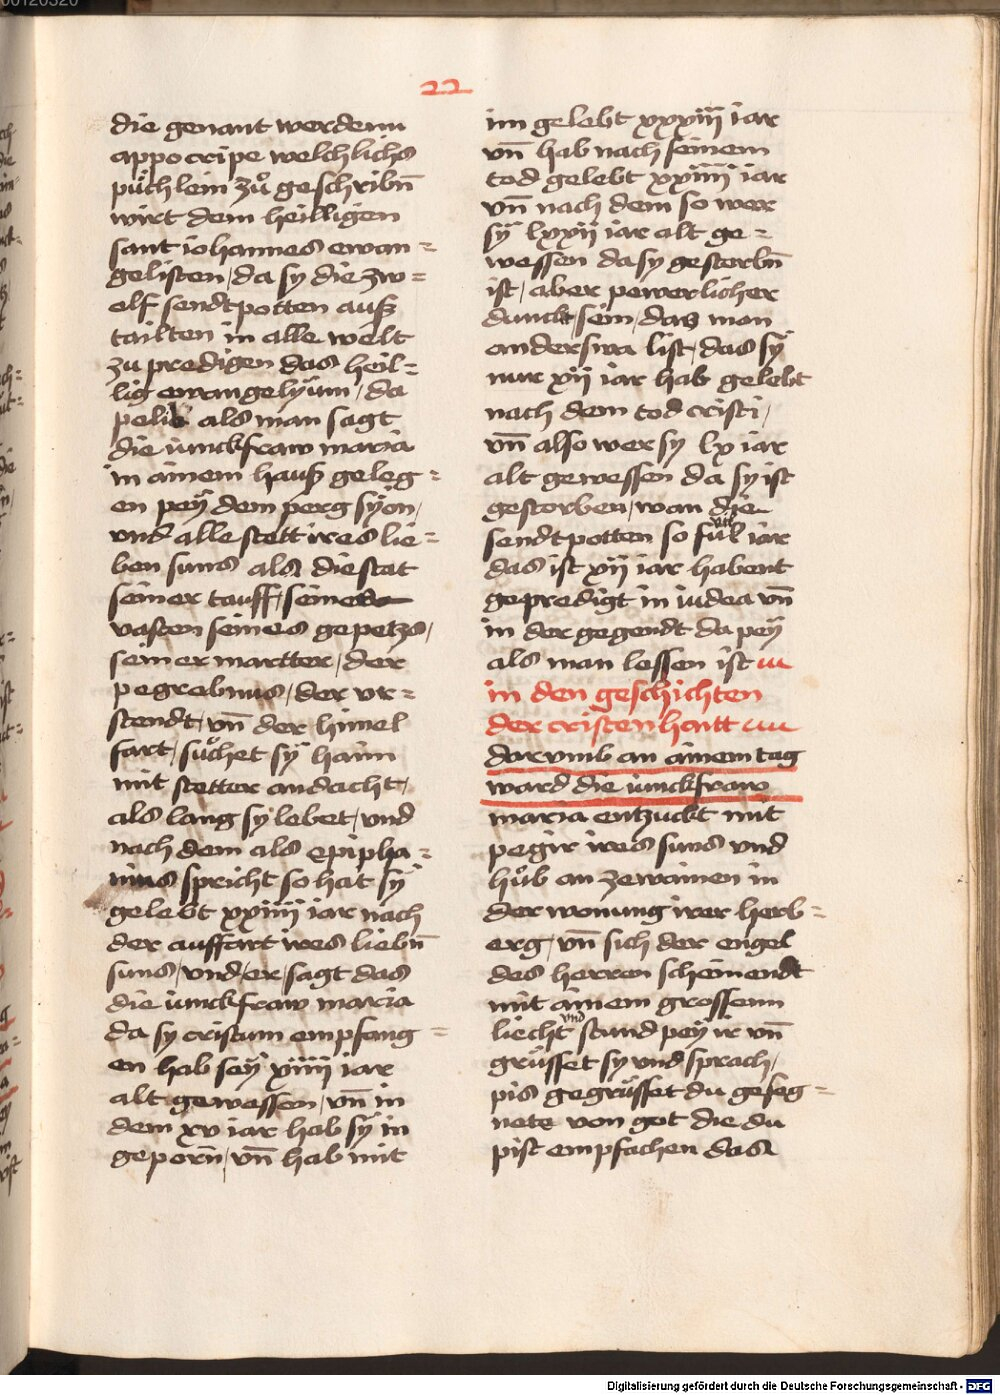 22
die genant werdenn
appocripe welchlichs
püchlein zů geschribn̄
wirt dem heilligen
sant iohannes ewan=
gelisten / da sy die zw=
elf sendtpotten auß
tailten in alle welt
zu predigen das heil=
lig ewangelyüm / da
pelib als man sagt
die iunckfraw maria
in ainem hauß geleg=
en peÿ dem perg sÿon /
vnd alle stett ires lie=
ben suns als die stat
seiner tauff / seines
vasten seines gepetzs /
seiner martter / der
pegrebnus / der vr=
stendt / vn̄ der himel
fart / sůchet sÿ haim
mit stetter andacht /
als lang sy lebet / vnd
nach dem als epipha=
nius spricht so hat sÿ
gelebt xxiiii iar nach
der auffart ires liebn̄
suns / vnd / er / sagt das
die iunckfraw maria
da sy cristum empfang=
en hab seÿ xiiii iar
alt gewessen / vn̄ in
dem xv iar hab sÿ in
geporn̄ / vn̄ hab mit
im gelebt xxxiii iar
vn̄ hab nach seinem
tod gelebt xxiiii iar
vn̄ nach dem so wer
sÿ lxxii iar alt ge=
wessen da sy gestorbn̄
ist / aber pewerlicher
dunckt sein / daz man
anderswa list / das sÿ
nur xii iar hab gelebt
nach dem tod cristi /
vn̄ also wer sy lx iar
alt gewessen da sy ist
gestorben / wan die
sendtpotten so vil iar
das ist xii iar habent
gepredigt in iudea vn̄
in der gegendt da peÿ
als man lessen ist
in den geschichten
der cristenhaitt
darvmb an ainem tag
ward die iunckfraw
maria entzuckt mit
pegir ires suns vnd
hůb an zewainen in
der wonung irer herb=
erg / vn̄ sich der engel
des herren scheinendt
mit ainem grossenn
liecht vnd stund peÿ ir vn̄
grüsset sy vnd sprach /
pis gegrüsset du geseg=
nete von got die du
pist empfachen das
Digitalisierung gefördert durch die Deutsche Forschungsgemeinschaft - DFG